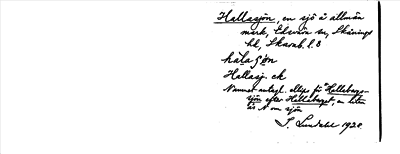 Hallasjön, en sjö å allmän
mark, Edsvära sn, Skånings
hd, Skarab. l. 8
hálasjön
Hallasj. ck
Namnet antagl. ellips för "Hallabergs-
sjön efter Hallaberget, en liten
ås N om sjön
S. Lundahl 1920.